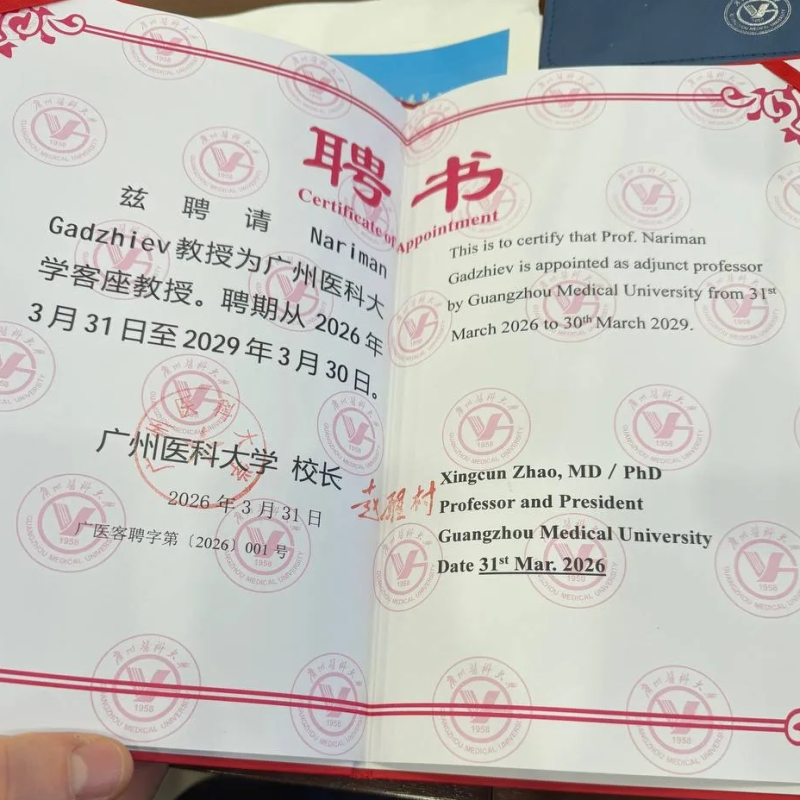 聘书
Certificate of Appointment
兹聘请 Nariman
Gadzhiev 教授为广州医科大
学客座教授。聘期从 2026 年
3 月 31 日至 2029 年 3 月 30 日。
广州医科大学 校长
赵醒村
2026 年 3 月 31 日
广医客聘字第〔2026〕001 号
This is to certify that Prof. Nariman
Gadzhiev is appointed as adjunct professor
by Guangzhou Medical University from 31st
March 2026 to 30th March 2029.
Xingcun Zhao, MD / PhD
Professor and President
Guangzhou Medical University
Date 31st Mar. 2026
广州医科大学
GUANGZHOU MEDICAL UNIVERSITY
1958